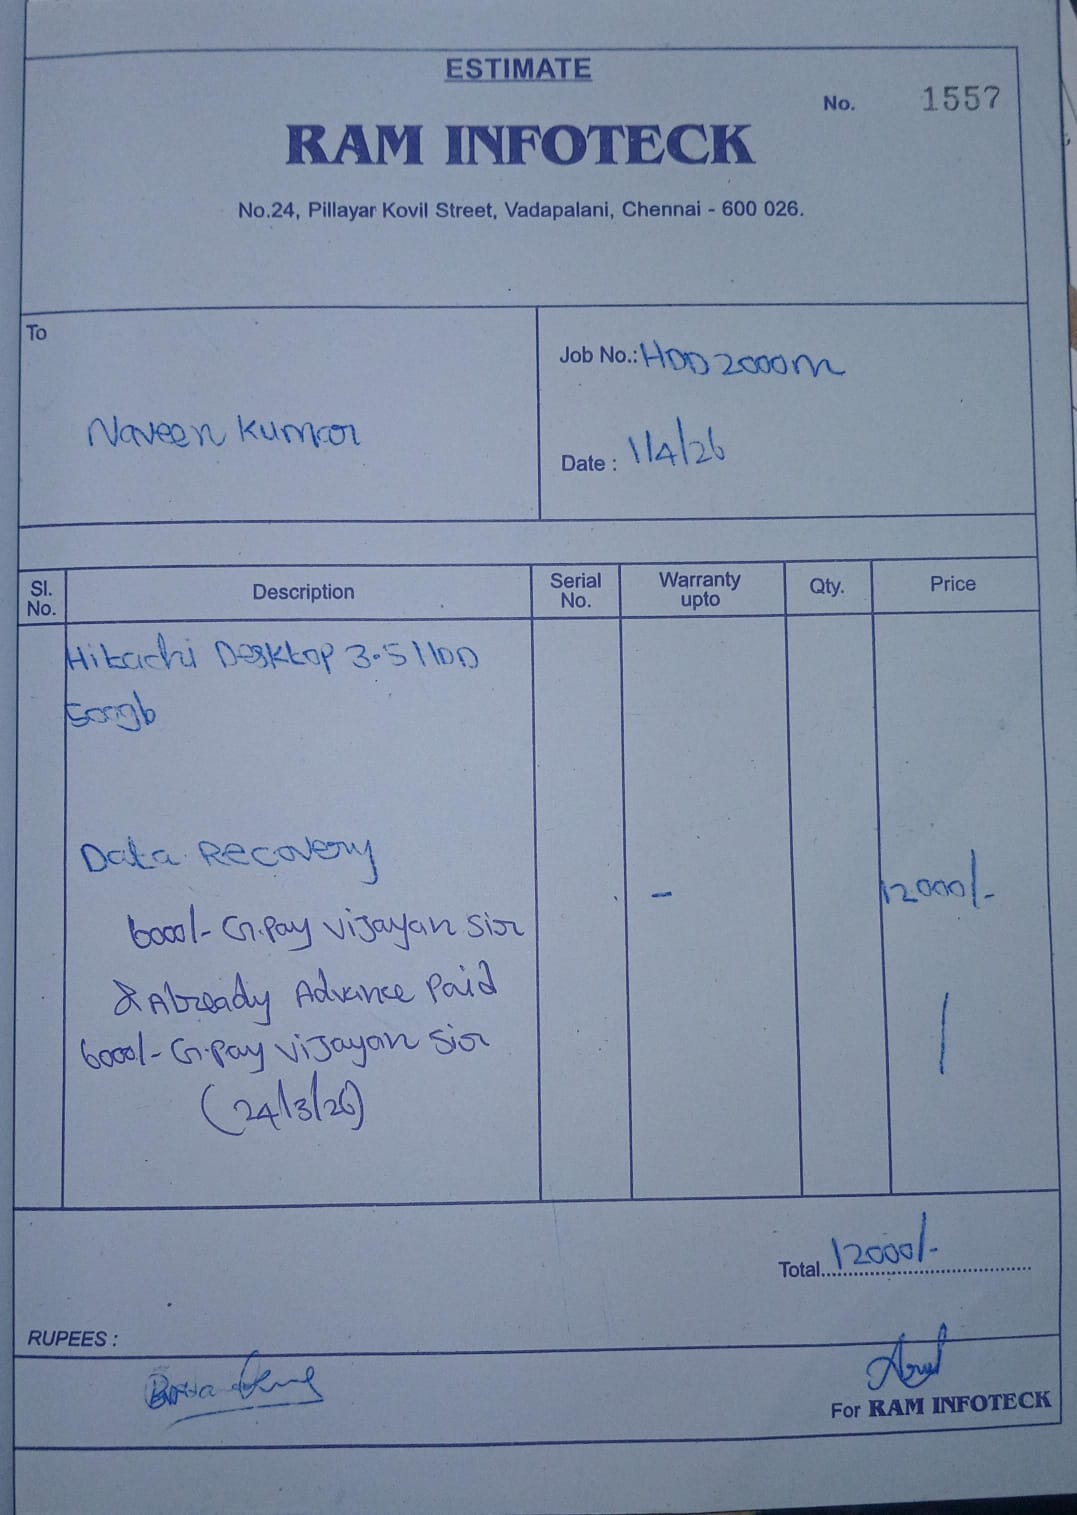 ESTIMATE
No. 1557
RAM INFOTECK
No.24, Pillayar Kovil Street, Vadapalani, Chennai - 600 026.
To
Naveen Kumar
Job No.: HDD2000m
Date : 1/4/26
Sl. No. Description Serial No. Warranty upto Qty. Price
Hitachi Desktop 3.5 HDD
500gb
Data Recovery - 12000/-
6000/- G.Pay Vijayan Sir
& Already Advance Paid
6000/- G.Pay Vijayan Sir
(24/3/26)
Total 12000/-
RUPEES :
For RAM INFOTECK